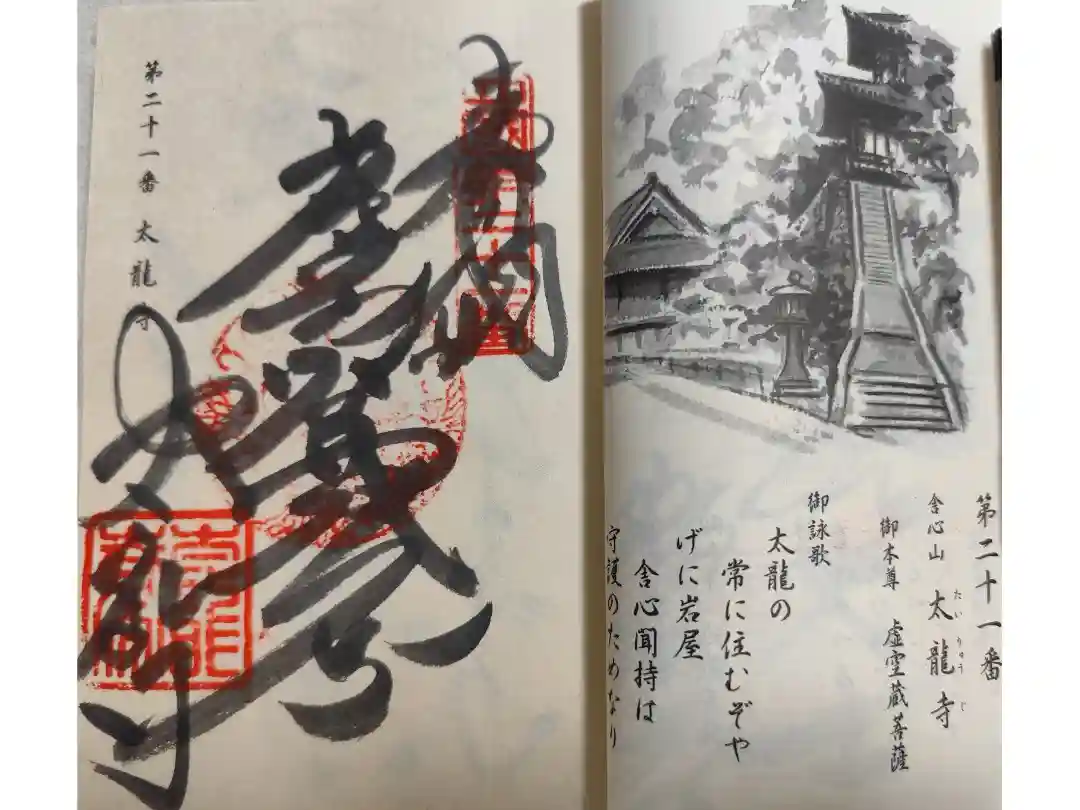 第二十一番
舎心山 太龍寺
たいりゅうじ
御本尊 虚空蔵菩薩
御詠歌
太龍の
常に住むぞや
げに岩屋
舎心聞持は
守護のためなり
奉納
太龍寺
第二十一番 太龍寺